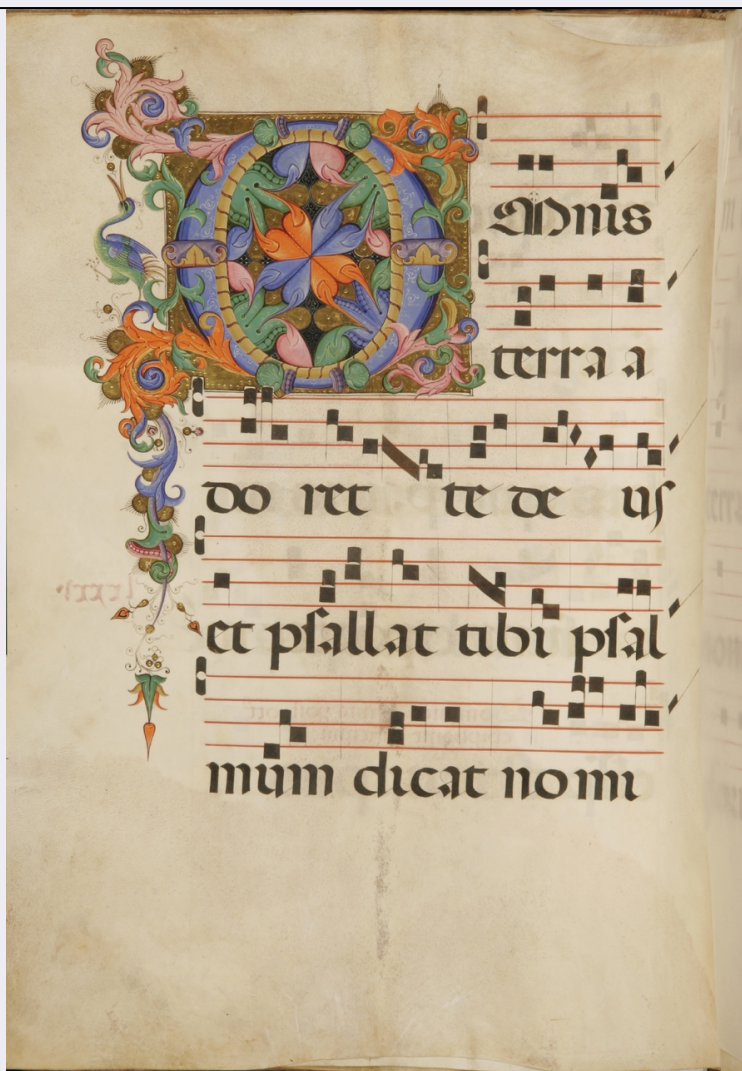 OMnis
terra a
do ret te de us
et psallat tibi psal
mum dicat no mi